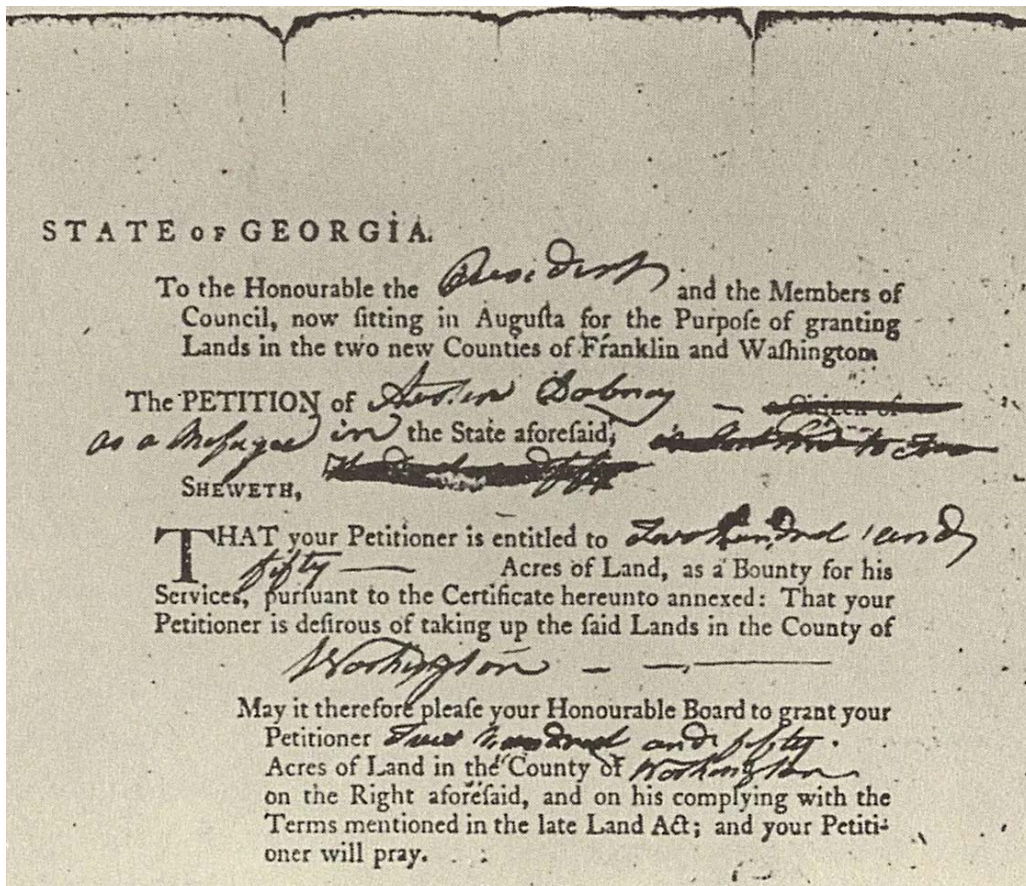 STATE OF GEORGIA.
To the Honourable the President and the Members of
Council, now ſitting in Auguſta for the Purpoſe of granting
Lands in the two new Counties of Franklin and Waſhington
The PETITION of Austin Dabney — a Citizen of
as a Refugee in the State aforeſaid,
SHEWETH,
THAT your Petitioner is entitled to Two Hundred and
fifty — Acres of Land, as a Bounty for his
Services, purſuant to the Certificate hereunto annexed: That your
Petitioner is deſirous of taking up the ſaid Lands in the County of
Washington — — —
May it therefore pleaſe your Honourable Board to grant your
Petitioner Two hundred and fifty
Acres of Land in the County of Washington
on the Right aforeſaid, and on his complying with the
Terms mentioned in the late Land Act; and your Petiti-
oner will pray.